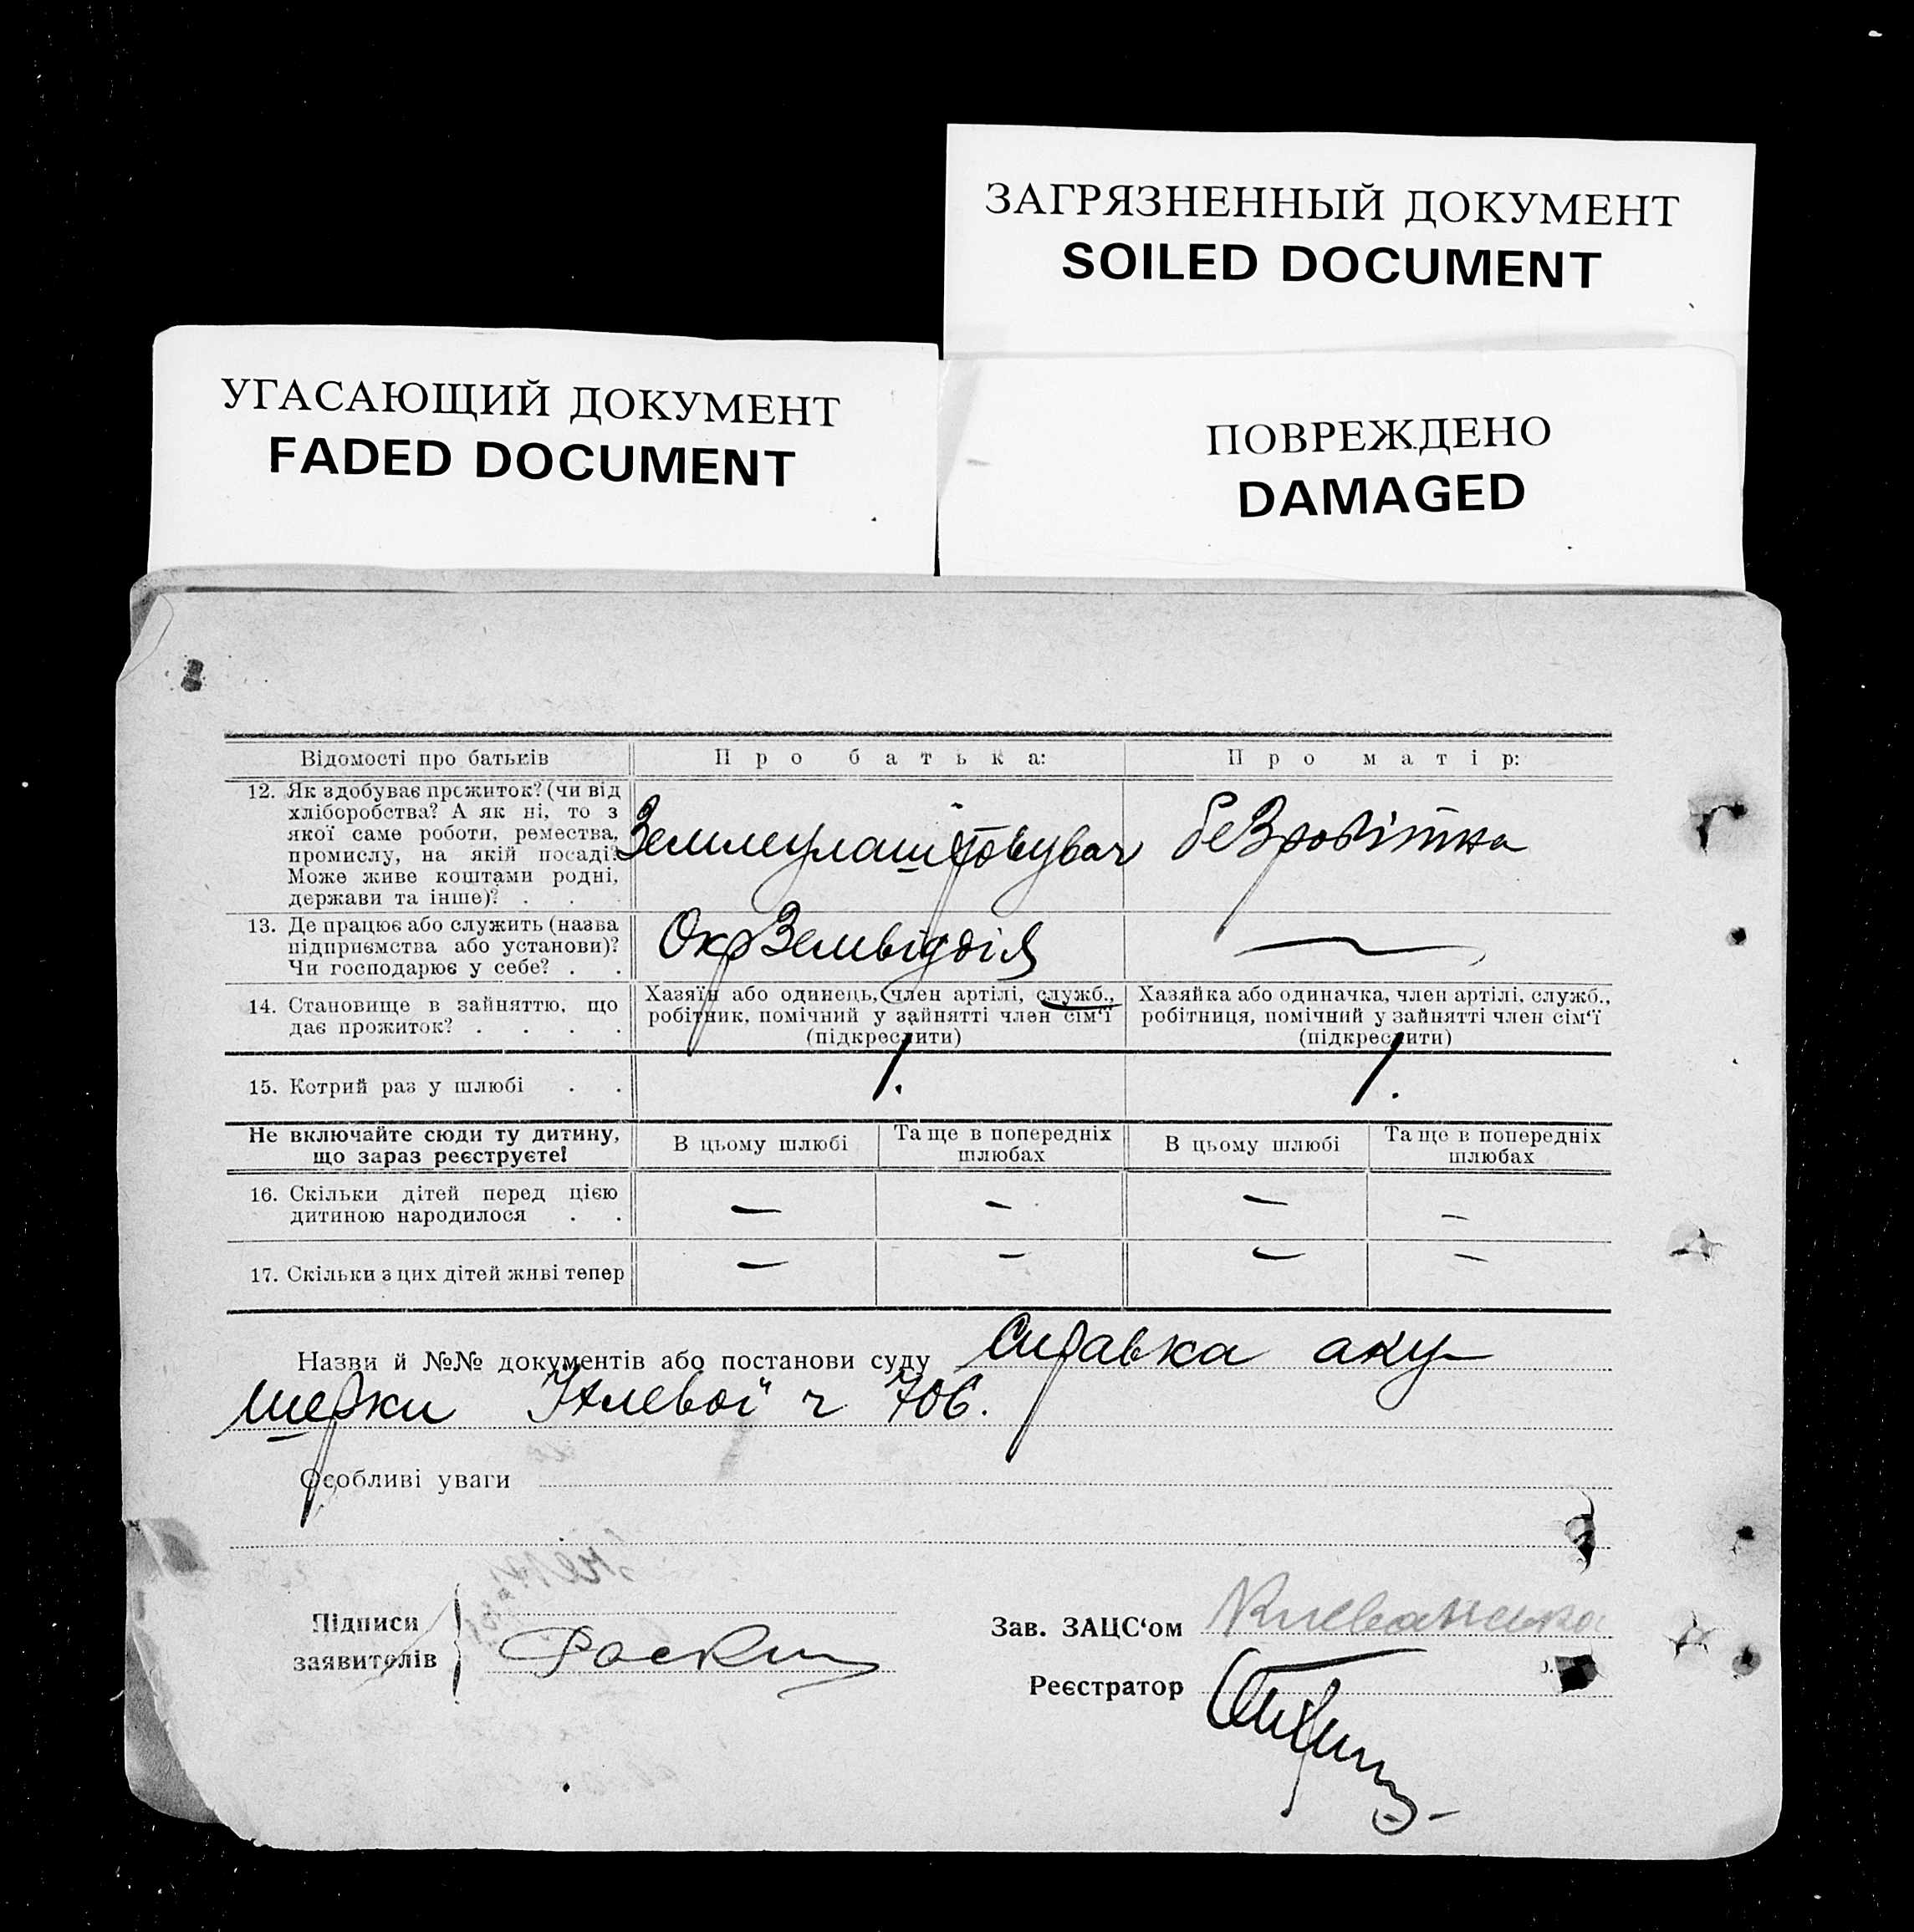 ЗАГРЯЗНЕННЫЙ ДОКУМЕНТ
SOILED DOCUMENT
УГАСАЮЩИЙ ДОКУМЕНТ
FADED DOCUMENT
ПОВРЕЖДЕНО
DAMAGED
Відомості про батьків
Про батька:
Про матір:
12. Як здобуває прожиток? (чи від
хліборобства? А як ні, то з
якої саме роботи, ремества,
промислу, на якій посаді?
Може живе коштами родні,
держави та інше)? . .
Землеулаштовувач
безробітна
13. Де працює або служить (назва
підприємства або установи)?
Чи господарює у себе? . .
ОкрЗемвідділ
—
14. Становище в зайняттю, що
дає прожиток? . . . .
Хазяїн або одинець, член артілі, служб.,
робітник, помічний у зайнятті член сім‘ї
(підкреслити)
Хазяйка або одиначка, член артілі, служб.,
робітниця, помічний у зайнятті член сім‘ї
(підкреслити)
15. Котрий раз у шлюбі . .
1.
1.
Не включайте сюди ту дитину,
що зараз реєструєте!
В цьому шлюбі
Та ще в попередніх
шлюбах
В цьому шлюбі
Та ще в попередніх
шлюбах
16. Скільки дітей перед цією
дитиною народилося . .
— — — —
17. Скільки з цих дітей живі тепер
— — — —
Назви й №№ документів або постанови суду Справка аку-
шерки ч 706.
Особливі уваги
Підписи
заявителів
Раскин
Зав. ЗАЦС‘ом
Реєстратор